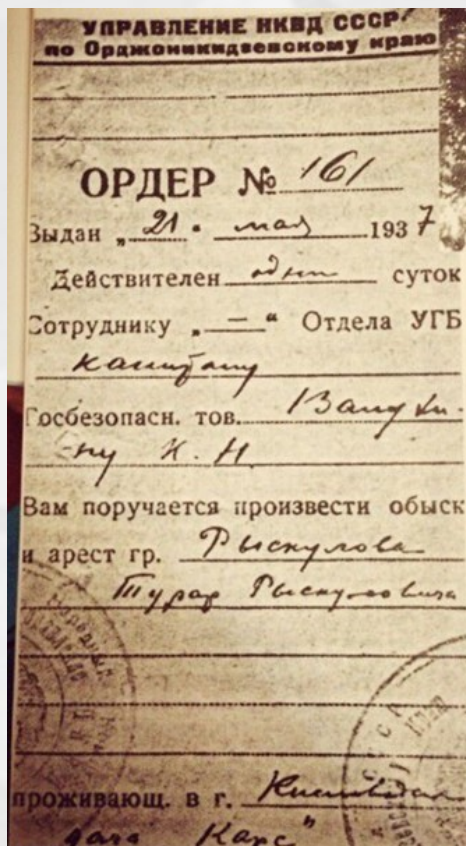 УПРАВЛЕНИЕ НКВД СССР
по Орджоникидзевскому краю
ОРДЕР № 161
Выдан „21" мая 1937
Действителен одни суток
Сотруднику „—" Отдела УГБ
капитану
Госбезопасн. тов.
ну К. Н.
Вам поручается произвести обыск
и арест гр. Рыскулова
Турар Рыскуловича
проживающ. в г. Кисловодск
дача Карс"